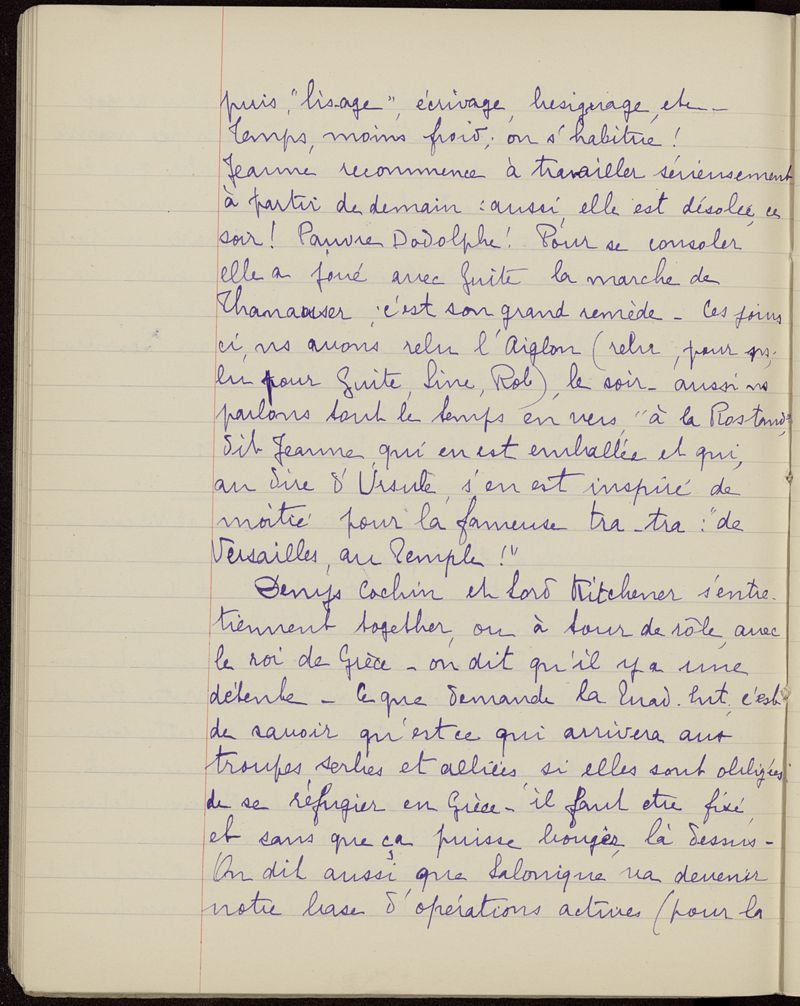 puis, "lisage", écrivage, besignage, etc –
Temps, moins froid; on s'habitue !
Jeanne recommence à travailler sérieusement
à partir de demain : aussi, elle est désolée, ce
soir ! Pauvre Dodolphe ! Pour se consoler
elle a joué avec Guite la marche de
Thanauser ; c'est son grand remède – Ces jours
ci, ns avons relu l'Aiglon (relu, pour ns;
lu pour Guite, Line, Rob), le soir – aussi ns
parlons tout le temps en vers, "à la Rostand",
dit Jeanne, qui en est emballée et qui,
au dire d'Ursule, s'en est inspiré de
moitié pour la fameuse tra-tra : "de
Versailles, au Temple !"
Denys Cochin et Lord Kitchener s'entre-
tiennent together, ou à tour de rôle, avec
le roi de Grèce – on dit qu'il y a une
détente – Ce que demande la Quad. Ent, c'est
de savoir qu'est ce qui arrivera aux
troupes serbes et alliées si elles sont obligées
de se réfugier en Grèce – il faut etre fixé,
et sans que ça puisse bouger, là dessus –
On dit aussi que Salonique va devenir
notre base d'opérations actives (pour la